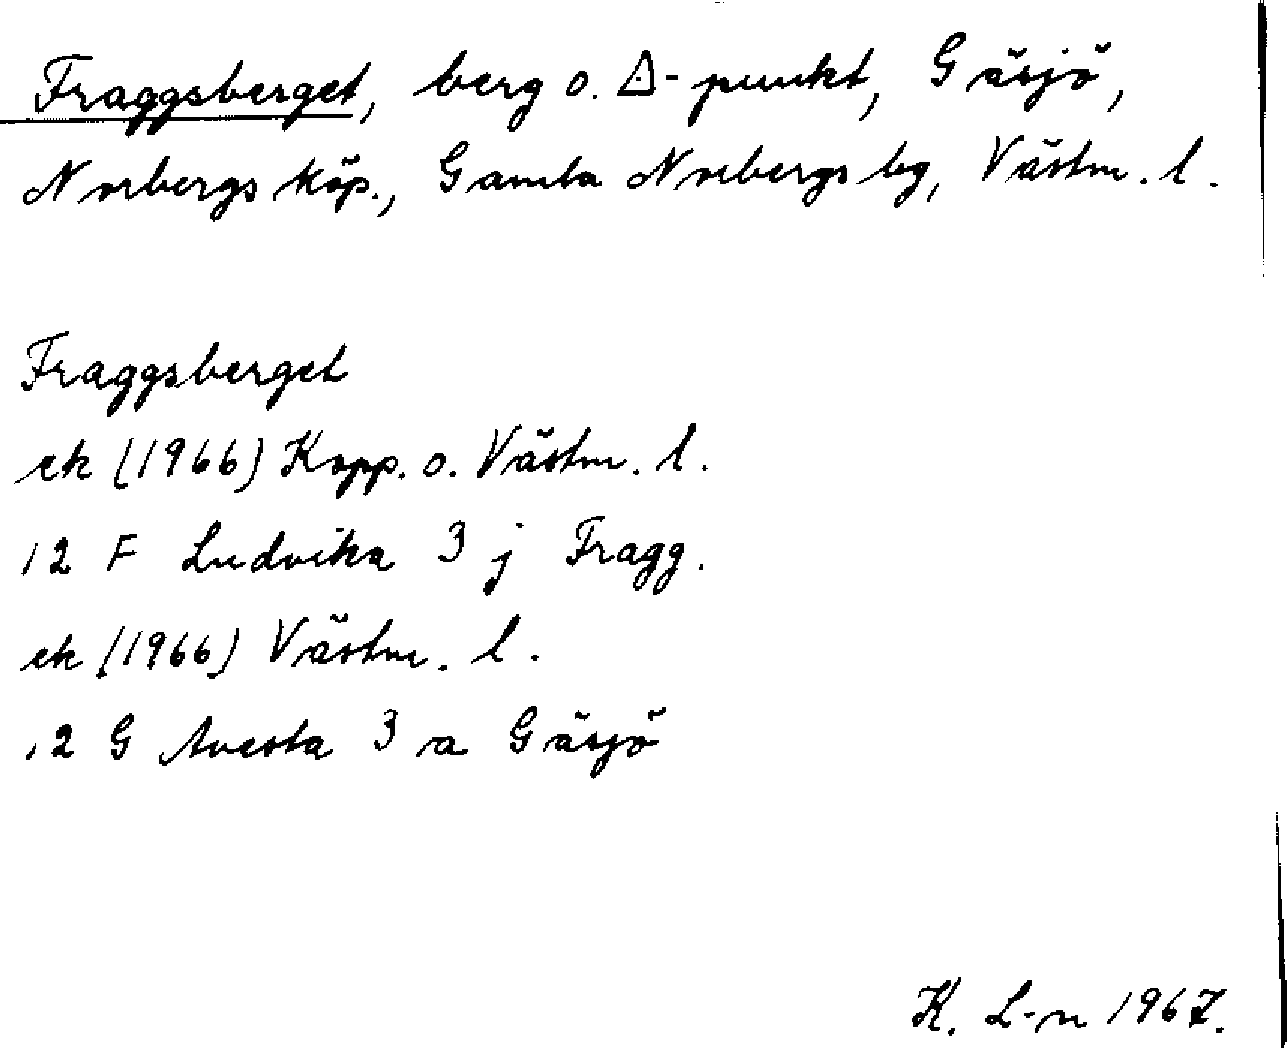 Fraggsberget, berg o. ∆-punkt, Gäsjö,
Norbergs köp., Gamla Norbergs bg, Västm. l.
Fraggsberget
ek (1966) Kopp. o. Västm. l.
12 F Ludvika 3 j Fragg.
ek (1966) Västm. l.
12 G Avesta 3 a Gäsjö
K. L-n 1967.